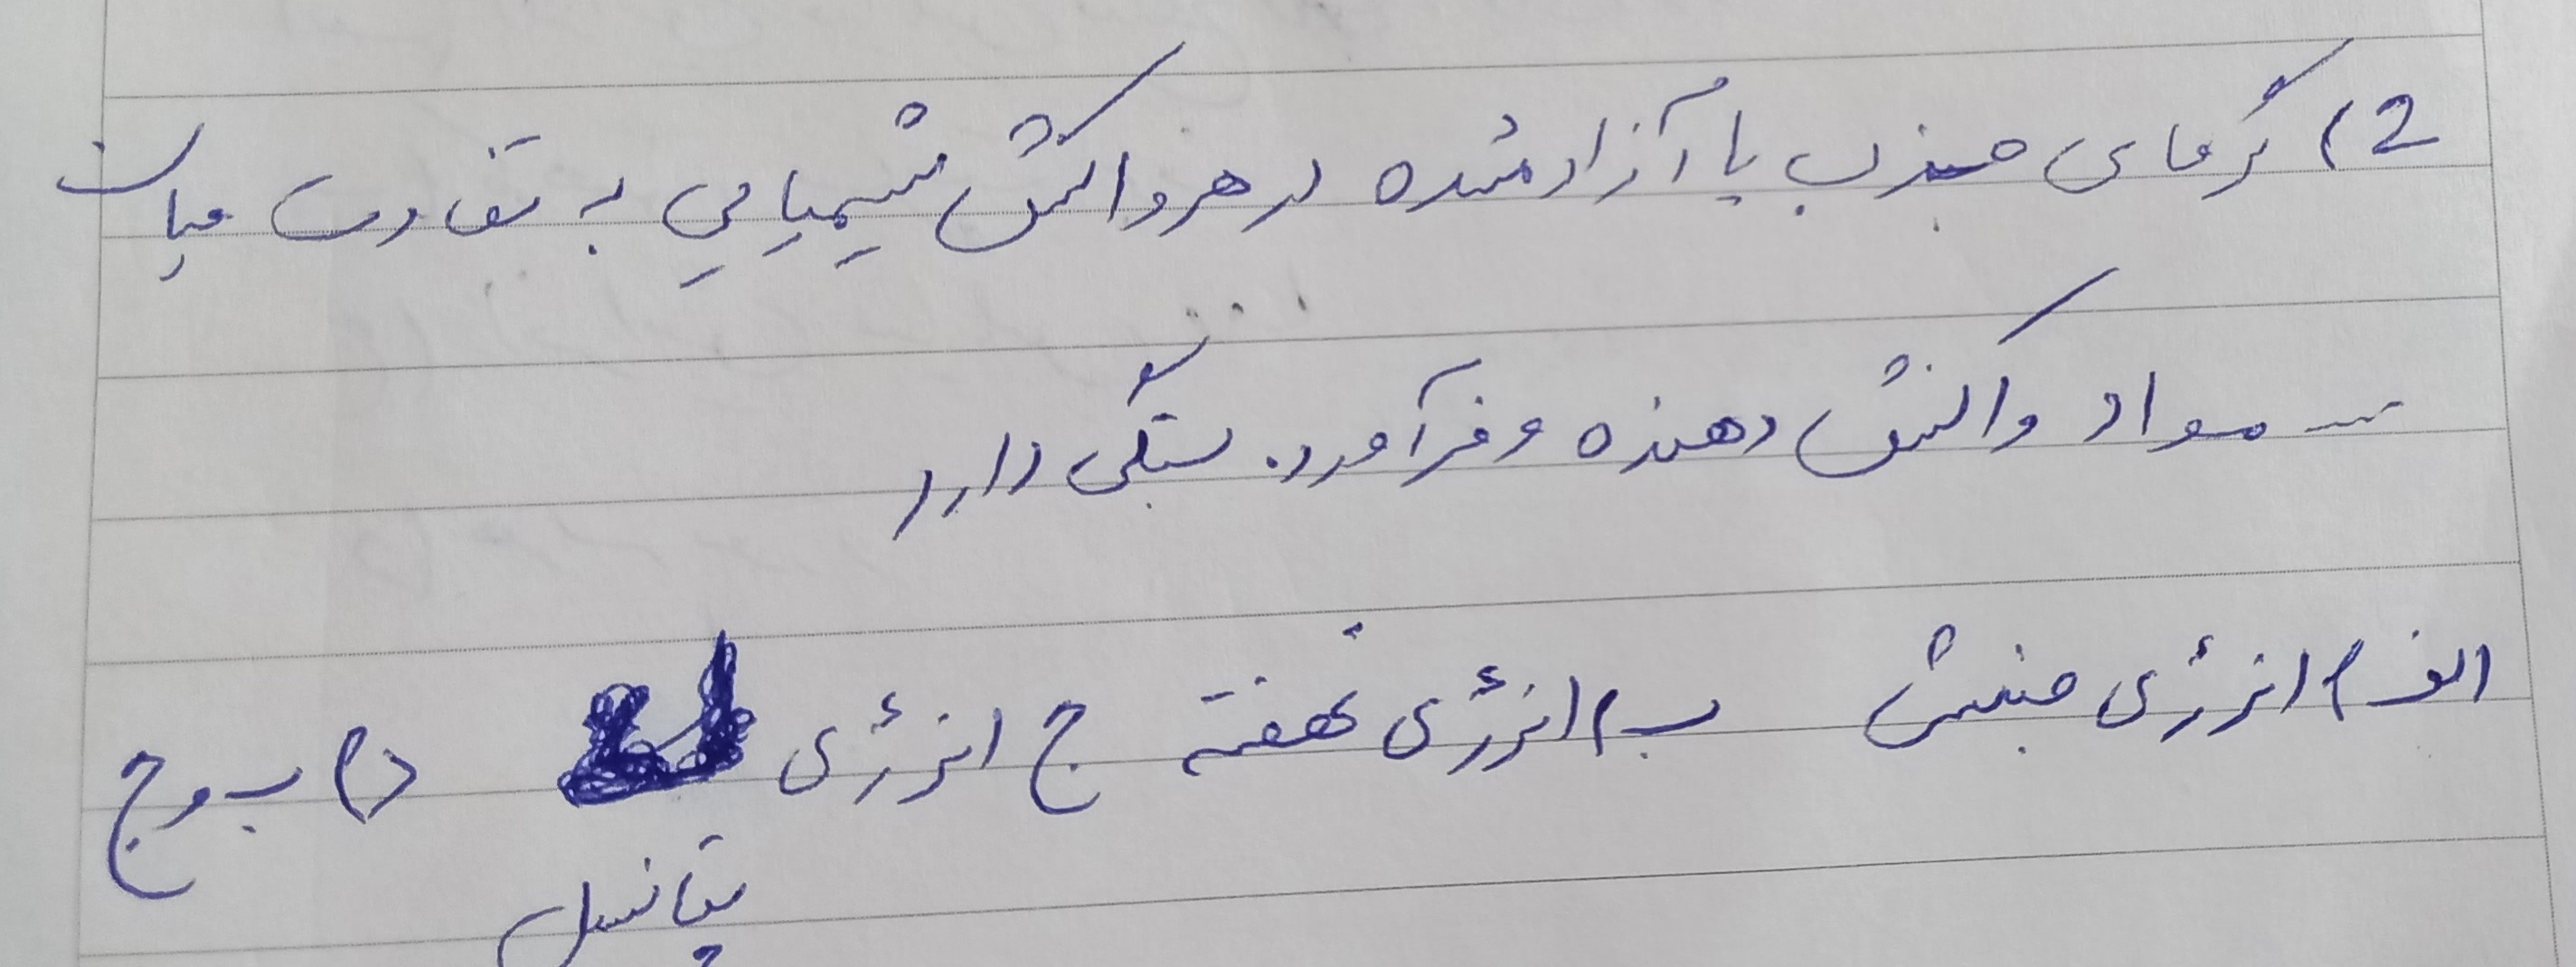 2) گرمای جذب یا آزاد شده در هر واکنش شیمیایی به تفاوت میان
ـــ مواد واکنش دهنده و فرآورده بستگی دارد
الف) انرژی جنبشی ب) انرژی نهفته ج انرژی د) ب و ج
پتانسیل